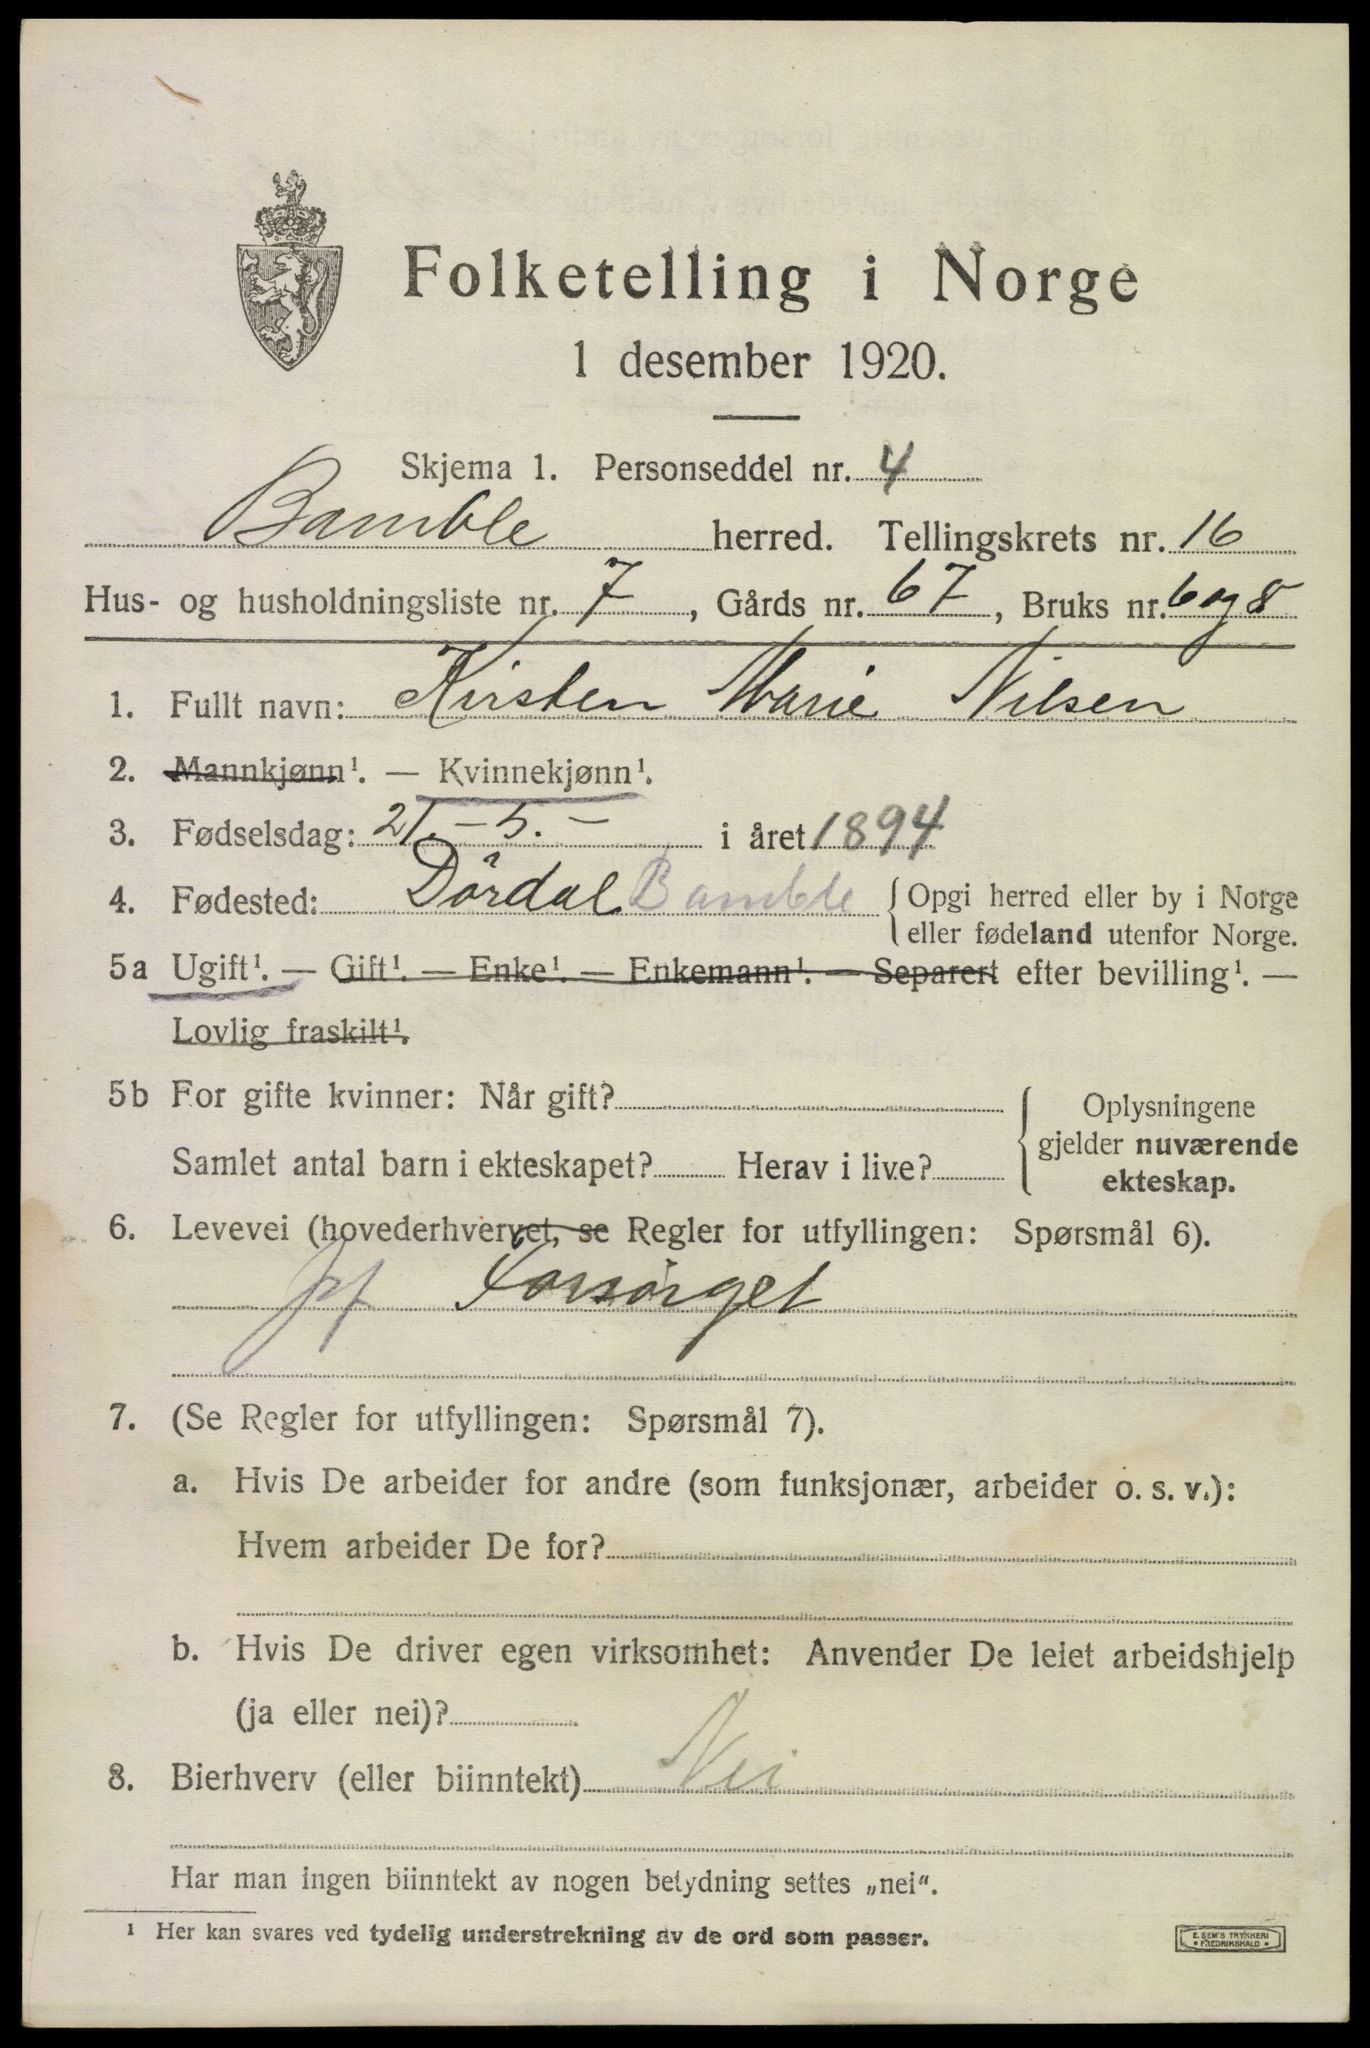 Folketelling i Norge
1 desember 1920.
Skjema 1. Personseddel nr. 4
Bamble herred. Tellingskrets nr. 16
Hus- og husholdningsliste nr. 7, Gårds nr. 67, Bruks nr. 6 og 8
1. Fullt navn: Kirsten Marie Nilsen
2. Mannkjønn¹. — Kvinnekjønn¹.
3. Fødselsdag: 21. – 5. – i året 1894
4. Fødested: Dördal Bamble { Opgi herred eller by i Norge
eller fødeland utenfor Norge.
5a Ugift¹. — Gift¹. — Enke¹. — Enkemann¹. — Separert efter bevilling¹. —
Lovlig fraskilt¹.
5b For gifte kvinner: Når gift?
Samlet antal barn i ekteskapet? Herav i live?
Oplysningene
gjelder nuværende
ekteskap.
6. Levevei (hovederhvervet, se Regler for utfyllingen: Spørsmål 6).
Forsörget
7. (Se Regler for utfyllingen: Spørsmål 7).
a. Hvis De arbeider for andre (som funksjonær, arbeider o. s. v.):
Hvem arbeider De for?
b. Hvis De driver egen virksomhet: Anvender De leiet arbeidshjelp
(ja eller nei)?
8. Bierhverv (eller biinntekt) Nei
Har man ingen biinntekt av nogen betydning settes „nei“.
¹ Her kan svares ved tydelig understrekning av de ord som passer.
E. SEM'S TRYKKERI
FREDRIKSHALD